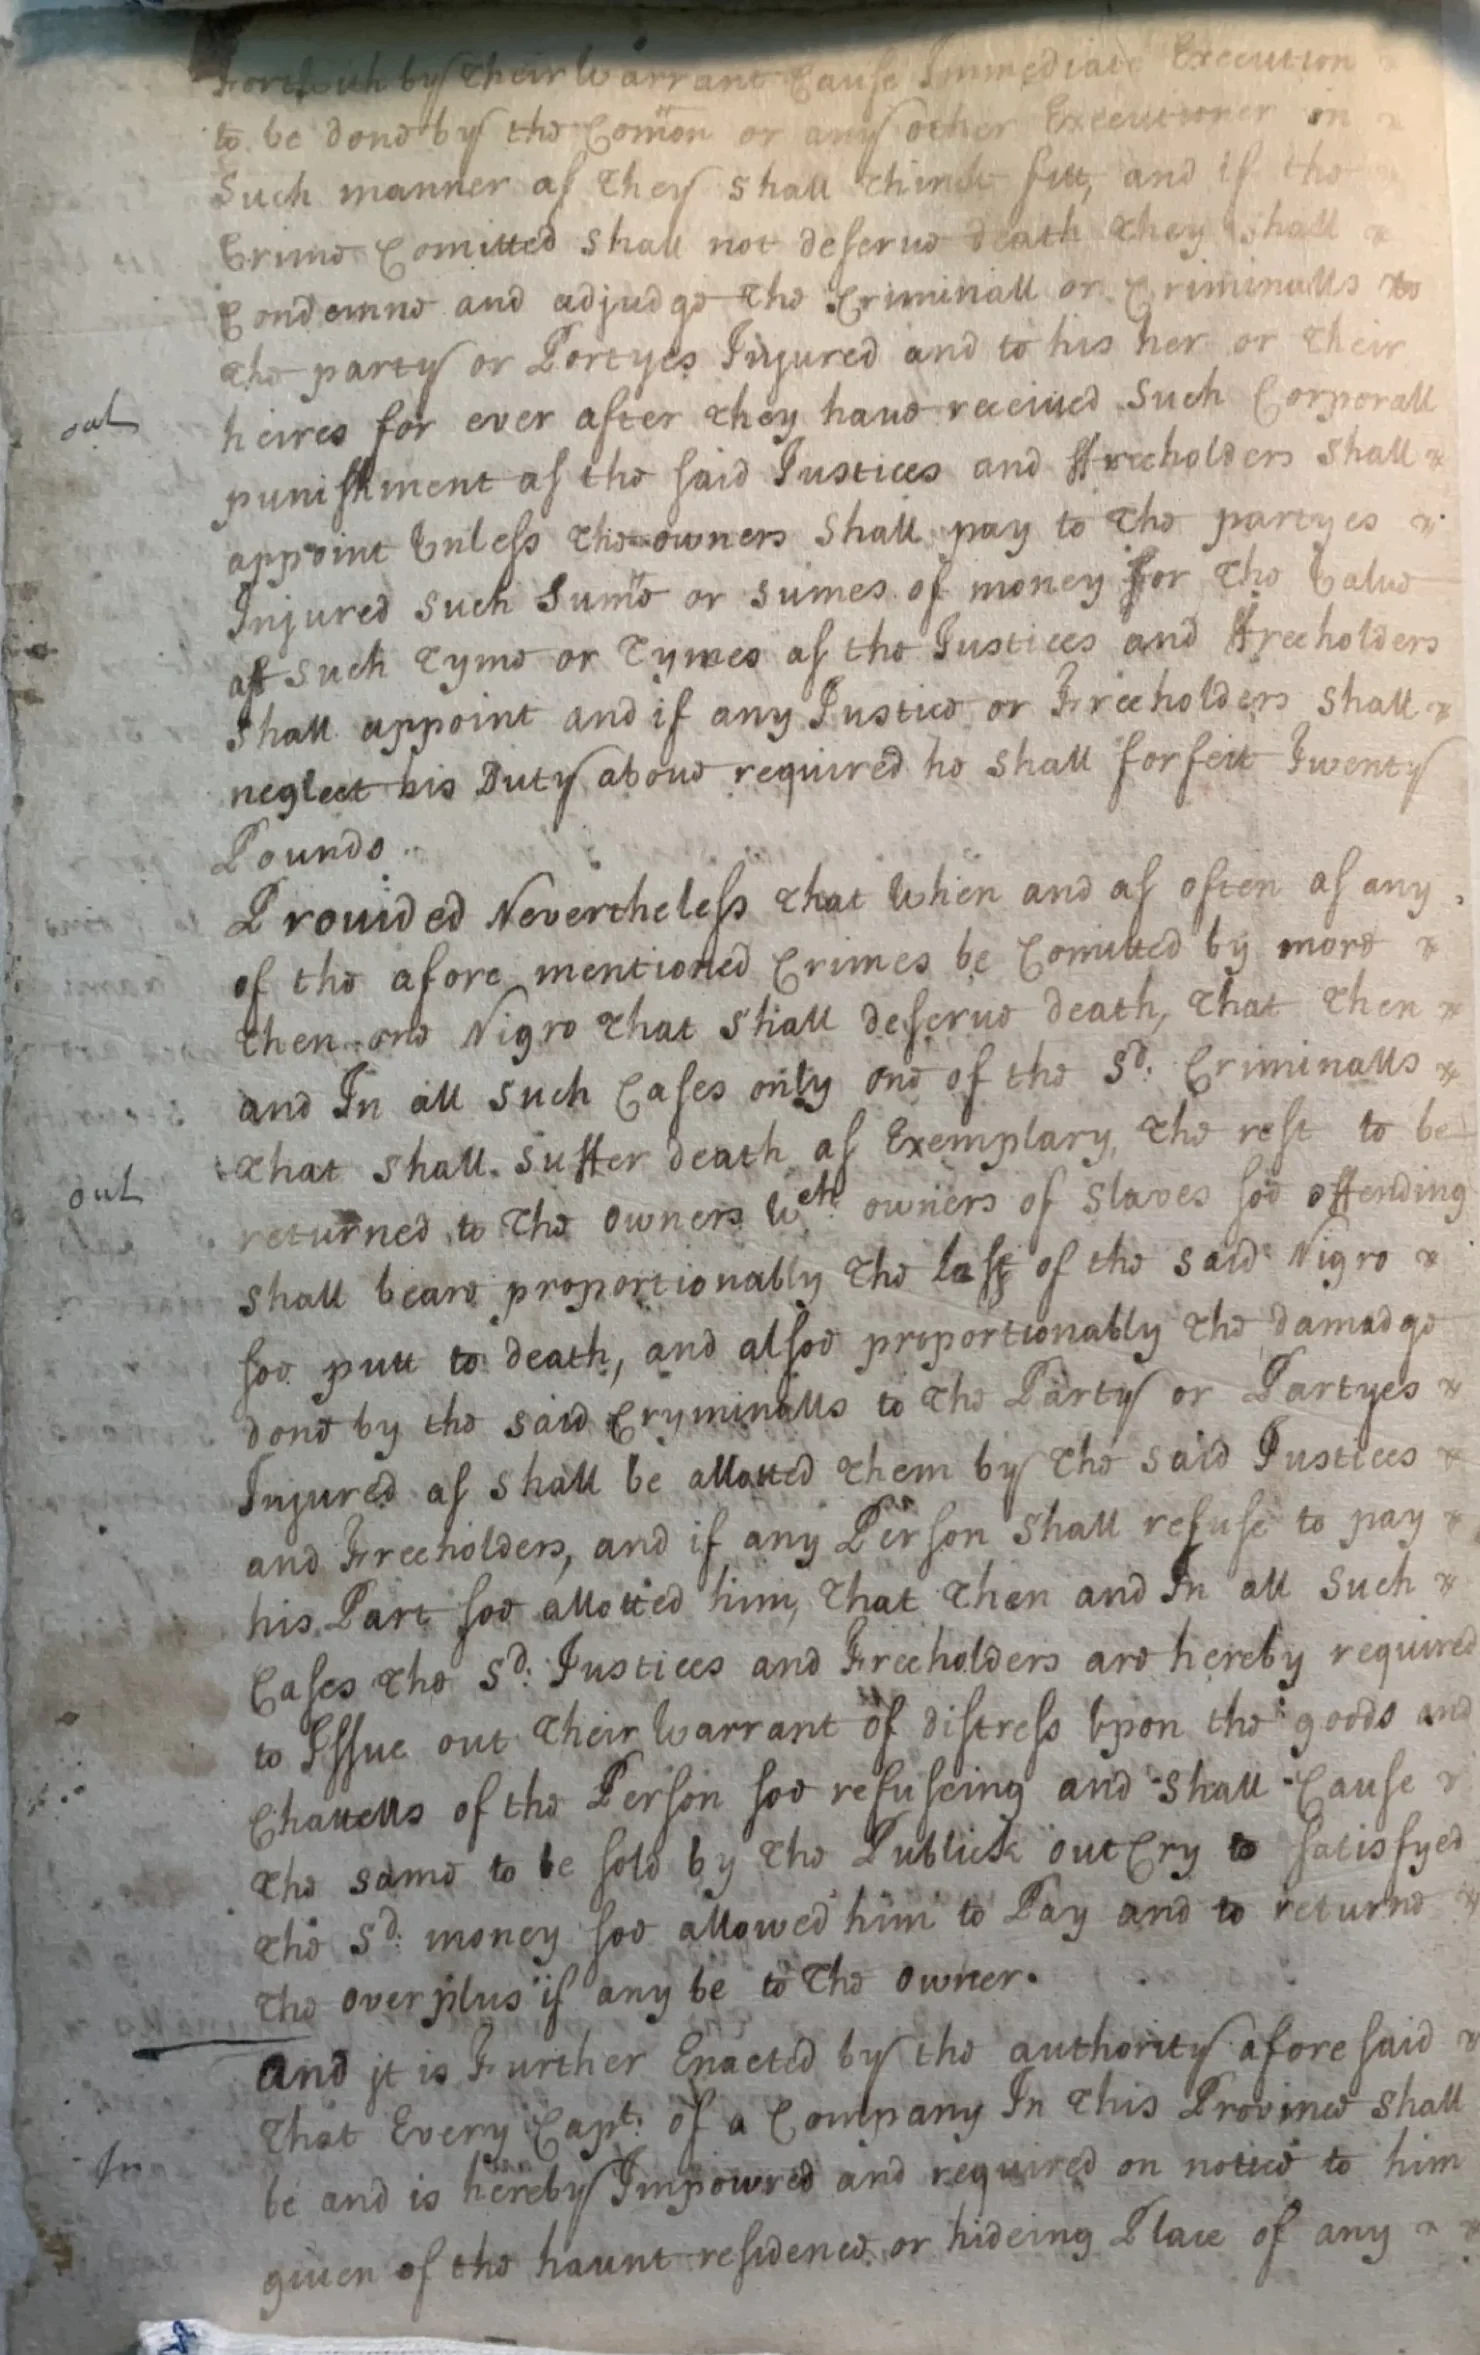 Forthwith by their Warrant Cause Immediate Execution
to be done by the Comon or any other Executioner in
Such manner as they shall think fitt, and if the
Crime Comitted shall not deserue death they shall
Condemne and adjudge the Criminall or Criminalls to
the party or Portyes Injured and to his her or their
out
heires for ever after they haue receiued Such Corporall
punishment as the said Justices and ffreeholders shall
appoint Unless the owners shall pay to the partyes
Injured such Sume or sumes of money for the Value
att such tyme or tymes as the Justices and ffreeholders
shall appoint and if any Justice or Freeholders shall
neglect his Duty aboue required he shall forfeit Twenty
Pounds
Prouided Nevertheless that When and as often as any
of the afore mentioned Crimes be Comitted by more
then one Nigro that shall deserue death, that then
and In all such Cases only one of the Sd: Criminalls
that shall suffer death as Exemplary, the rest to be
out
returned to the owners Wch owners of slaves soe offending
shall beare proportionably the loss of the said Nigro
soe putt to death, and alsoe proportionably the damadge
done by the said Cryminalls to the Party or Partyes
Injured as shall be allotted them by the said Justices
and Freeholders, and if any Person shall refuse to pay
his Part soe allotted him, that then and In all such
Cases the Sd: Justices and Freeholders are hereby required
to Issue out their Warrant of distress Upon the goods and
Chattells of the Person soe refuseing and shall Cause
the same to be sold by the Publick outCry to satisfyed
the Sd: money soe allowed him to Pay and to returne
the overplus if any be to the owner.
And it is Further Enacted by the authority aforesaid
that Every Capt: of a Company In this Province shall
In
be and is hereby Impowred and required on notice to him
giuen of the haunt residence or hideing Place of any